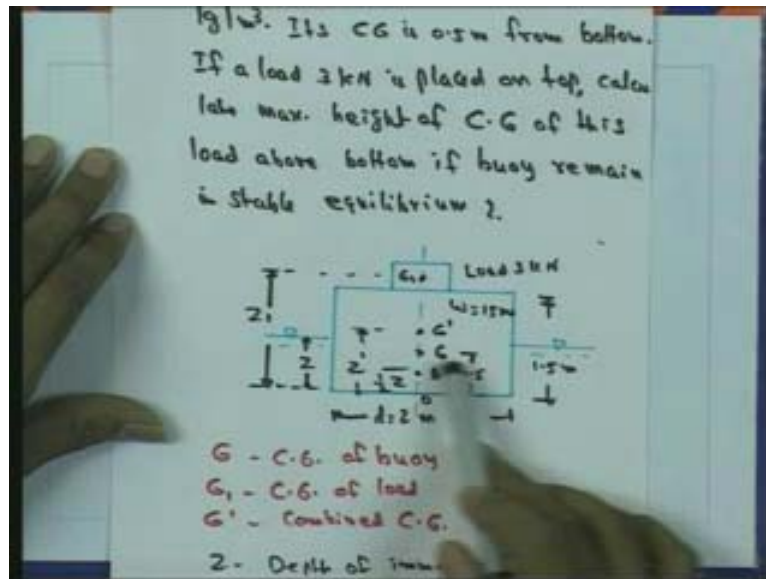 kg/m³. Its CG is 0.5m from bottom.
If a load 3 kN is placed on top, calcu
late max. height of C.G of this
load above bottom if buoy remain
in stable equilibrium ?.
G₁ Load 3 kN
Z₁ W=15
G'
Z Z' G 1.5m
Z
d=2m
G - C.G. of buoy
G₁ - C.G. of load
G' - Combined C.G.
Z - Depth of imm